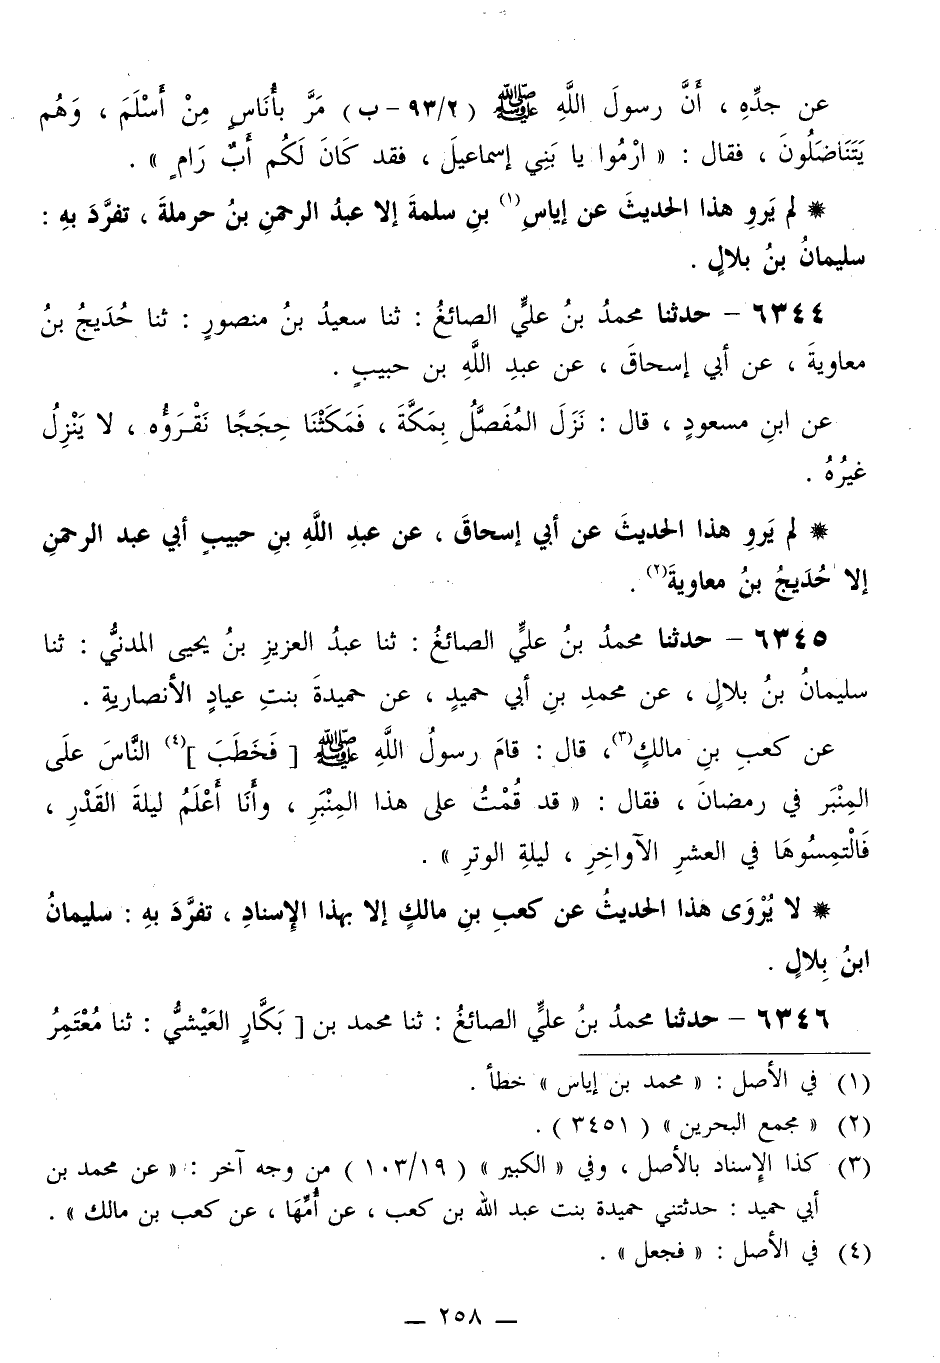 عن جدِّهِ ، أَنَّ رسولَ اللَّهِ ﷺ ( ٩٣/٢ - ب ) مَرَّ بأُنَاسٍ مِنْ أَسْلَمَ ، وَهُم
يَتَنَاضَلُونَ ، فقال : « ارْمُوا يا بَنِي إسماعيلَ ، فقد كَانَ لَكُم أَبٌ رَامٍ » .
* لم يَروِ هذا الحديثَ عن إياسِ(١) بنِ سلمةَ إلا عبدُ الرحمنِ بنُ حرملةَ ، تفرَّدَ بهِ :
سليمانُ بنُ بلالٍ .
٦٣٤٤ - حدثنا محمدُ بنُ عليٍّ الصائغُ : ثنا سعيدُ بنُ منصورٍ : ثنا حُدَيجُ بنُ
معاويةَ ، عن أبي إسحاقَ ، عن عبدِ اللَّهِ بن حبيبٍ .
عن ابنِ مسعودٍ ، قال : نَزَلَ المُفَصَّلُ بِمَكَّةَ ، فَمَكَثْنَا حِجَجًا نَقْرَؤُه ، لا يَنْزِلُ
غيرُهُ .
* لم يَروِ هذا الحديثَ عن أبي إسحاقَ ، عن عبدِ اللَّهِ بنِ حبيبٍ أبي عبد الرحمنِ
إلا حُدَيجُ بنُ معاويةَ(٢) .
٦٣٤٥ - حدثنا محمدُ بنُ عليٍّ الصائغُ : ثنا عبدُ العزيزِ بنُ يحيى المدنيُّ : ثنا
سليمانُ بنُ بلالٍ ، عن محمدِ بنِ أبي حميدٍ ، عن حميدةَ بنتِ عيادٍ الأنصاريةِ .
عن كعبِ بنِ مالكٍ(٣)، قال : قامَ رسولُ اللَّهِ ﷺ [ فَخَطَبَ ](٤) النَّاسَ علَى
المِنْبَر في رمضانَ ، فقال : « قد قُمْتُ على هذا المِنْبَرِ ، وأَنَا أَعْلَمُ ليلةَ القَدْرِ ،
فَالْتمِسُوهَا في العشرِ الآواخِرِ ، ليلةِ الوترِ » .
* لا يُرْوَى هذا الحديثُ عن كعبِ بنِ مالكٍ إلا بهذا الإِسنادِ ، تفرَّدَ بهِ : سليمانُ
ابنُ بِلالٍ .
٦٣٤٦ - حدثنا محمدُ بنُ عليٍّ الصائغُ : ثنا محمد بن [ بَكَّارٍ العَيْشيُّ : ثنا مُعْتَمِرُ
(١) في الأصل : « محمد بن إياس » خطأ .
(٢) « مجمع البحرين » ( ٣٤٥١ ) .
(٣) كذا الإِسناد بالأصل ، وفي « الكبير » ( ١٠٣/١٩ ) من وجه آخر : « عن محمد بن
أبي حميد : حدثتني حميدة بنت عبد الله بن كعب ، عن أُمِّهَا ، عن كعب بن مالك » .
(٤) في الأصل : « فجعل » .
— ٢٥٨ —